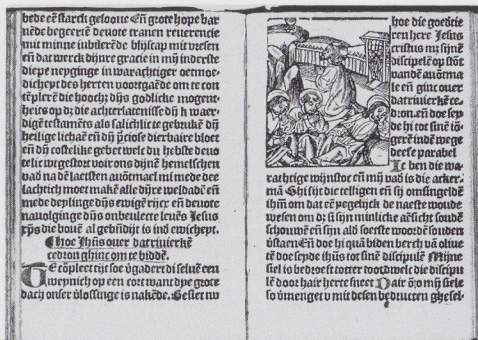 bede eñ starck geloove Eñ grote hope bar
nēde begeertē devote tranen reverencie
mit minne iubilerēde blijscap mit vresen
eñ dat werck dijnre gracie in mij inderste
diepe neyginge in warachtiger oetmoe
dicheyt des herten voortgaēde om te con
tēplerē die hoocheit dijs godlicke mogent
heits op dz die achterlatenisse dijs
testamēts als salichlic te gebrukē dijs
heilige lichaē eñ dijs p̄ciose dierbaire bloet
eñ dijs costelike gebet welc du hebste devo
telic wtgestort voir ons dijnē hemelschen
vad na dē laetsten avōtmael mi mede dee
lachtich moet makē alle dijre weldadē eñ
mede deylinge dijs ewige rijcx eñ devote
navolginge dijs onbeulecte levēs Jesus
xp̄s die bovē al gebn̄dijt is ind ewicheyt.
Hoe Jhūs over dat rivierkē
cedron ghinc om te biddē.
Te cōpleet tijt soe vgaderdi selve een
weynich op een cort want dye grote
dach onser v̄lossinge is nakēde. Besiet nu
hoe die goedtie
ren here Jesus
cristus mz sijnē
discipelē op stōt
vandē avōtma
le eñ ginc over
dat rivierkē ce-
dron. eñ doe sey
de hi tot sinē iō-
gerē indē wege
deese parabel
Ic ben die wa-
rachtige wijnstoc eñ mij vad is die acker-
mā Ghi sijt die telligen eñ sij omsingeldē
ihm̄ om dat eē pegelijck de naeste woude
wesen om dz si sijn minlicke aēsicht soudē
schouwē eñ sijn ald soetste woordē souden
v̄staen Eñ doe hi quā biden berch vā olive
tē doe seyde ihūs tot sinē discipulē Mijne
siel is bedroeft totter doot dwelc die discipu
lē door hair herte sneet Dair om mij siele
so v̄menget v mit desen bedructen ghesel-